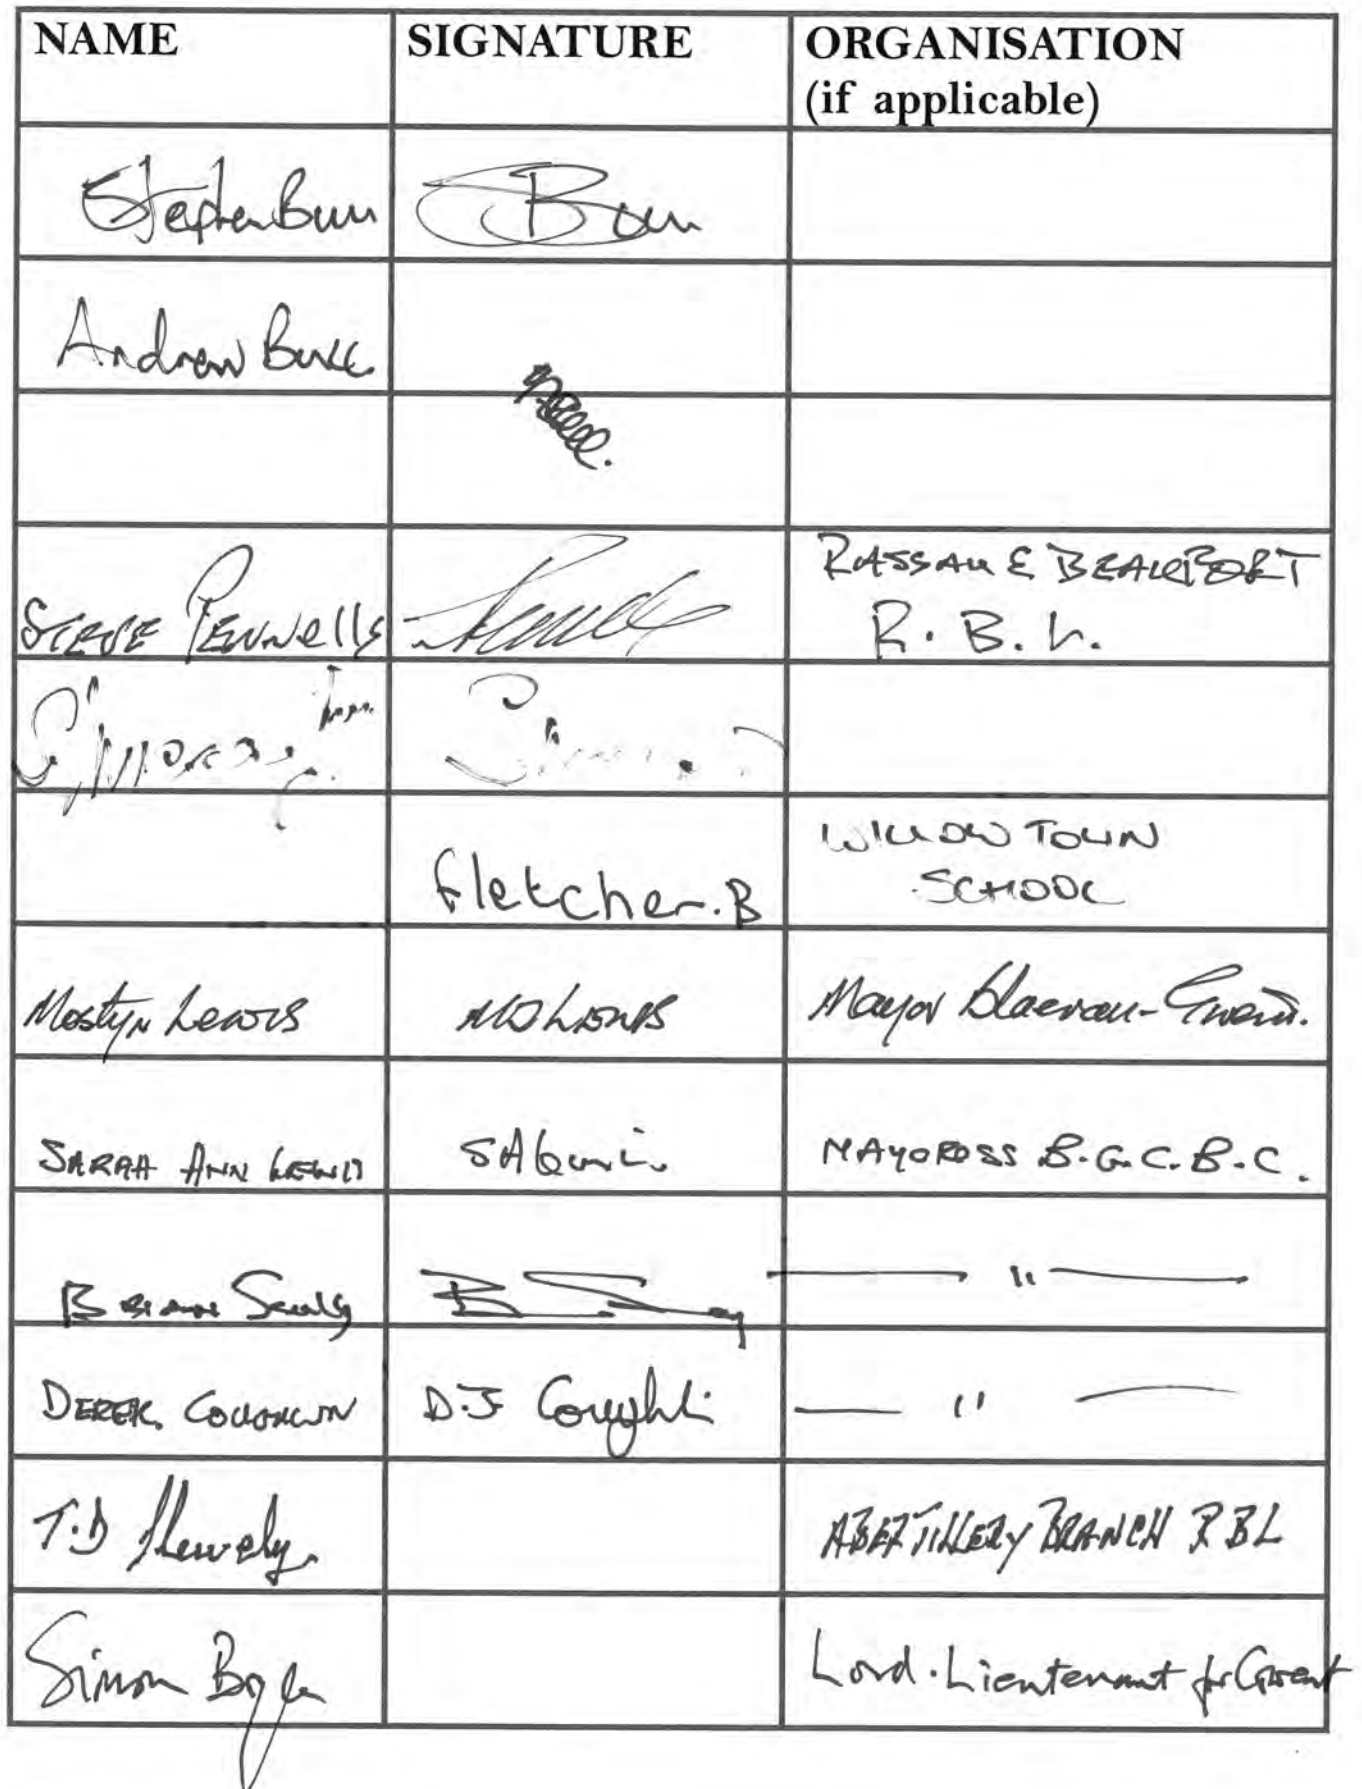 NAME SIGNATURE ORGANISATION
(if applicable)
Stephen Bun Bun
Andrew
STEVE Pennells RASSAU & BEAUFORT
R. B. L.
Fletcher. B WILLOW TOWN
SCHOOL
Mostyn Lewis MD Lewis Mayor Blaenau-Gwent.
SARAH ANN LEWIS MAYORESS B.G.C.B.C.
BRIAN Scully — " —
DEREK COUGHLIN D.J Coughlin — " —
T.D ABERTILLERY BRANCH RBL
Simon Boyle Lord-Lieutenant for Gwent